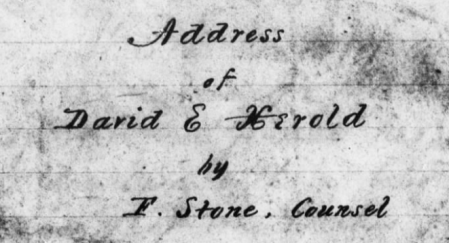 Address
of
David E Herold
by
F. Stone, Counsel